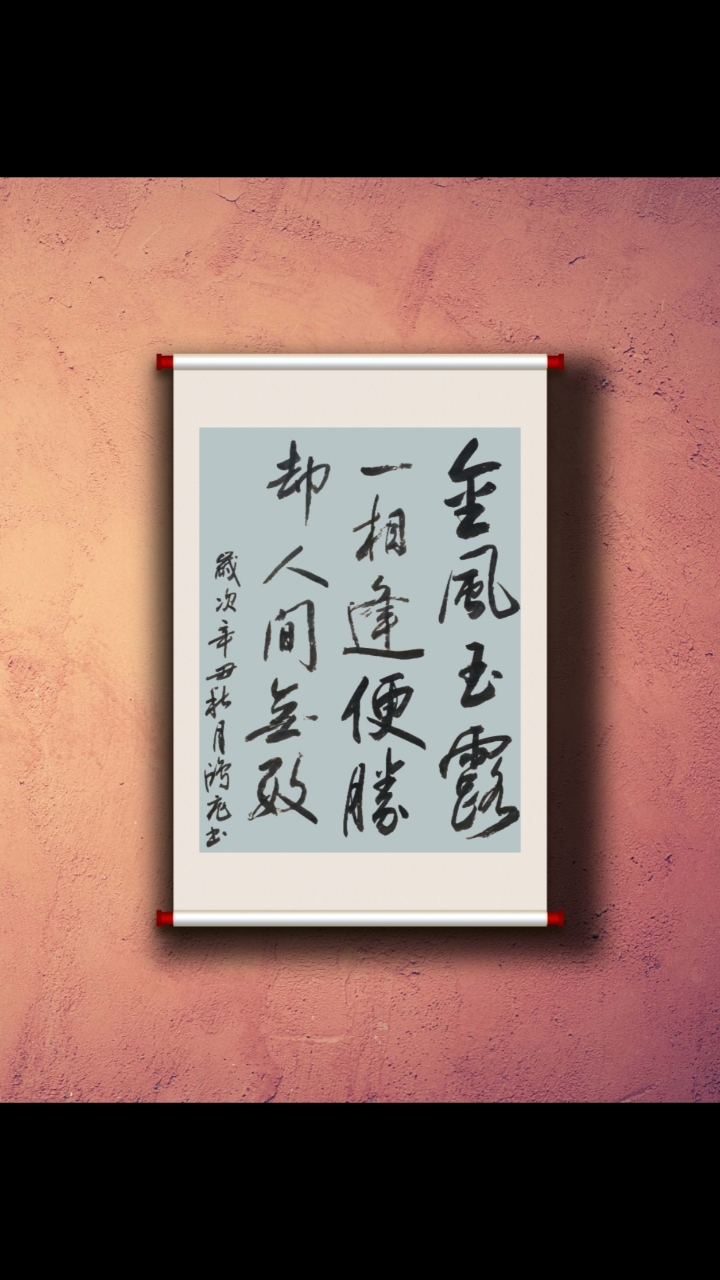 金風玉露
一相逢便勝
却人間無數
歲次辛丑秋月书